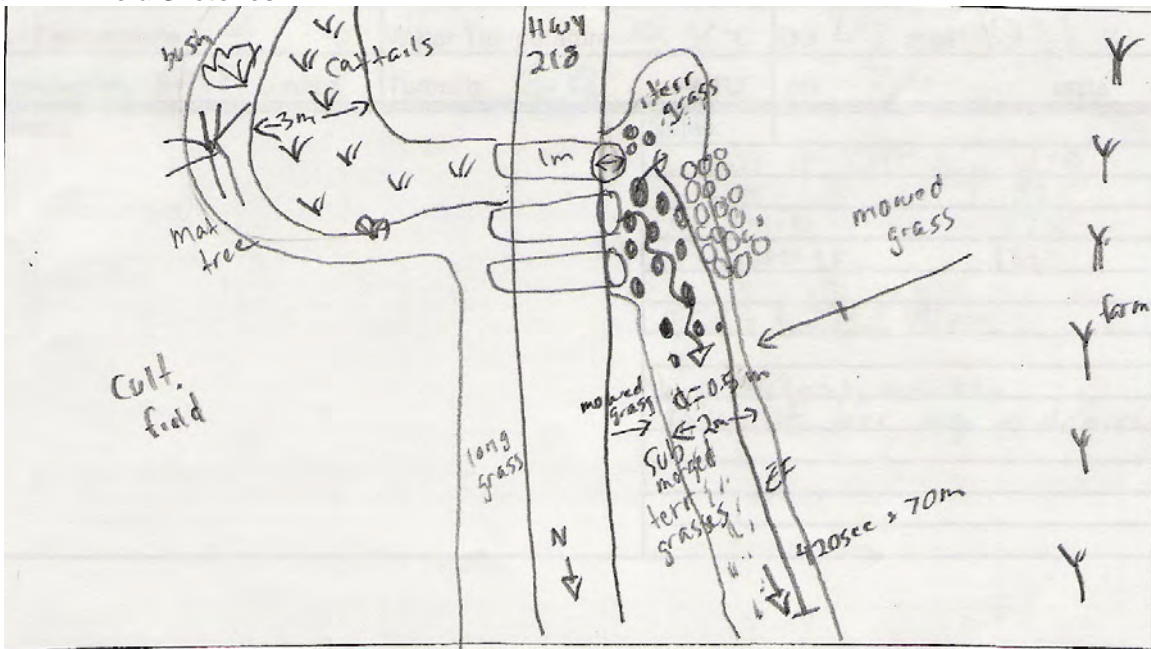 bush
cattails
3m
HWY
218
terr
grass
1m
mat
tre
mowed
grass
farm
Cult.
field
long
grass
mowed
grass
d=0.5m
2m
Sub
merged
terr
grasses
EF
420sec > 70m
N